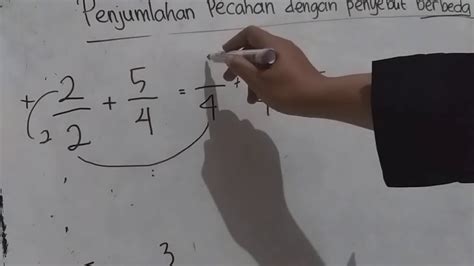 Penjumlahan Pecahan dengan Penyebut Berbeda
+ 2 2/2 + 5/4 = /4 +
3